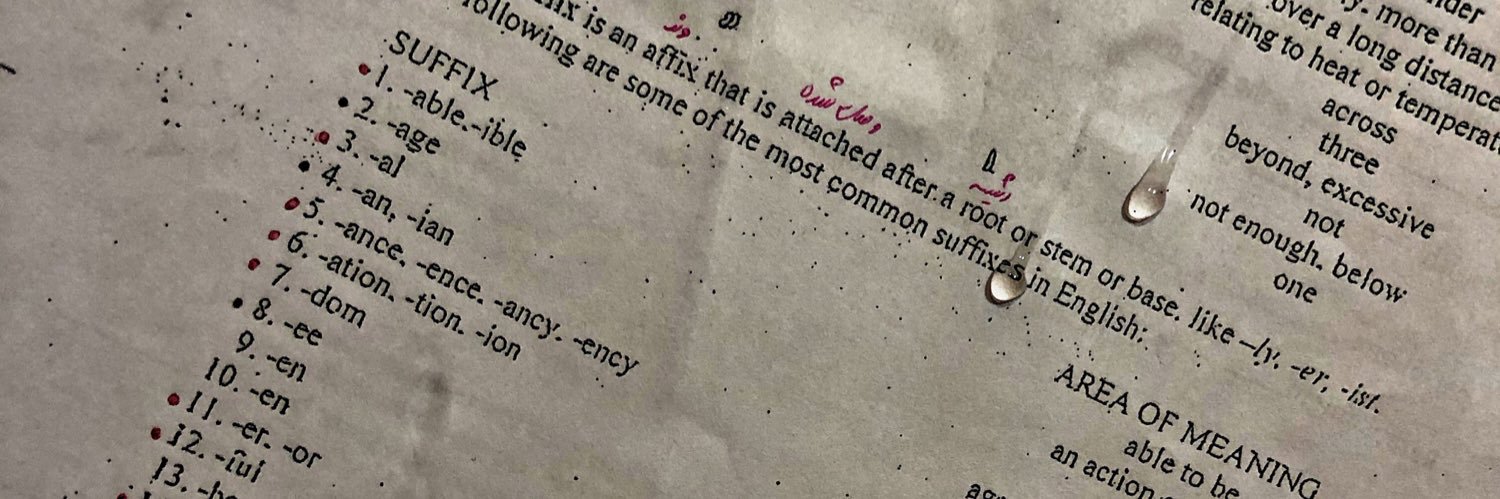 nder
y. more than
over a long distance
relating to heat or temperat
across
three
beyond, excessive
not
not enough. below
one
fix is an affix that is attached after.a root or stem or base. like –ly. -er, -ist.
following are some of the most common suffixes in English:
وند
وصل شده
ریشه
SUFFIX
AREA OF MEANING
1. -able.-ible
able to be
2. -age
an action
3. -al
4. -an, -ian
5. -ance, -ence. -ancy. -ency
6. -ation. -tion. -ion
7. -dom
8. -ee
9. -en
10. -en
11. -er. -or
12. -ful
13.